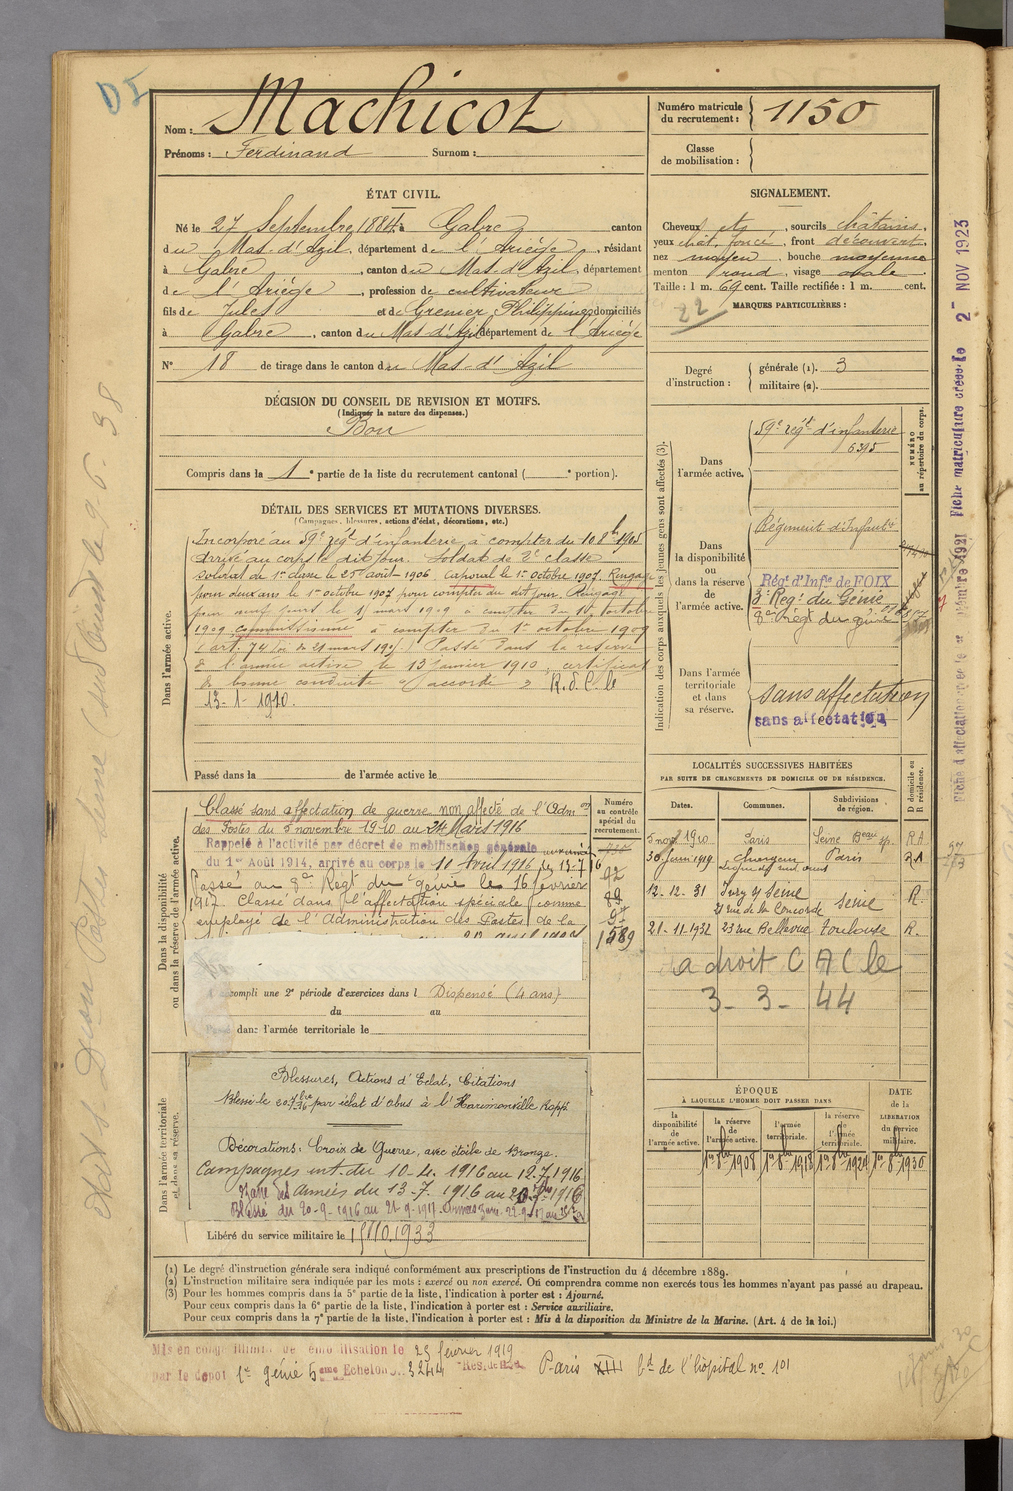 DI
Nom : Machicot
Prénoms : Ferdinand Surnom :
Numéro matricule du recrutement : 1150
Classe de mobilisation :
ÉTAT CIVIL.
Né le 27 Septembre 1884 à Gabre canton
du Mas-d'Azil, département de l'Ariège, résidant
à Gabre, canton du Mas-d'Azil, département
de l'Ariège, profession de cultivateur
fils de Jules et de Grenier Philippine domiciliés
à Gabre, canton du Mas d'Azil département de l'Ariège
N° 18 de tirage dans le canton du Mas-d'Azil
SIGNALEMENT.
Cheveux et, sourcils châtains,
yeux chât. foncé, front découvert,
nez moyen, bouche moyenne
menton rond, visage ovale
Taille : 1 m. 69 cent. Taille rectifiée : 1 m. cent.
22
MARQUES PARTICULIÈRES :
Degré d'instruction : générale (1). 3
militaire (2).
DÉCISION DU CONSEIL DE REVISION ET MOTIFS.
(Indiquer la nature des dispenses.)
Bon
Compris dans la 1e partie de la liste du recrutement cantonal ( e portion).
DÉTAIL DES SERVICES ET MUTATIONS DIVERSES.
(Campagnes, blessures, actions d'éclat, décorations, etc.)
Dans l'armée active.
Incorporé au 59e rég't d'infanterie à compter du 10 8bre 1905
arrivé au corps le dit jour. Soldat de 2e classe
soldat de 1re classe le 25 août 1906 caporal le 1er octobre 1907. Rengagé
pour deux ans le 1er octobre 1907 pour compter du dit jour. Rengagé
mars 1909 à compter du 1er octobre
1909 commissionné à compter du 1er octobre 1909
(art. 74 loi du 21 mars 1905) Passé dans la réserve
de l'armée active le 13 janvier 1910, certificat
de bonne conduite accordé R.d.C. le
13-1-1910.
Passé dans la de l'armée active le
Indication des corps auxquels les jeunes gens sont affectés (3).
NUMÉRO au répertoire du corps.
Dans l'armée active.
59e rég't d'infanterie
6395
Dans la disponibilité ou dans la réserve de l'armée active.
Régiment d'Infant'ie
Rég't d'Inf'ie de FOIX
3e Reg't du Génie
8e Régt du génie
Dans l'armée territoriale et dans sa réserve.
sans affectation
sans affectation
LOCALITÉS SUCCESSIVES HABITÉES
PAR SUITE DE CHANGEMENTS DE DOMICILE OU DE RÉSIDENCE.
Dates. Communes. Subdivisions de région. D domicile ou R résidence.
5 nov 1910 Paris Seine Beau sp. RA
30 Juin 1919 Paris RA
12-12-31 Ivry s/ Seine
21 rue de la Concorde Seine R.
21-11-1932 23 rue Bellevue Toulouse R.
a droit C A C le
3-3-44
Dans la disponibilité ou dans la réserve de l'armée active.
Numéro au contrôle spécial du recrutement.
Classé sans affectation de guerre non affecté de l'Adm on
des Postes du 5 novembre 1910 au 24 Mars 1916
Rappelé à l'activité par décret de mobilisation générale
du 1er Août 1914, arrivé au corps le 11 Avril 1916
Passé au 8e Regt du génie le 16 février
1917. Classé dans l'affectation spéciale comme
employé de l'Administration des Postes de la
92
89
97
1589
A accompli une 2e période d'exercices dans l Dispensé (4 ans)
du au
Passé dans l'armée territoriale le
Dans l'armée territoriale et dans sa réserve.
Blessures, Actions d'Eclat, Citations
Blessé le 20-7bre 36 par éclat d'obus à l'
Décorations : Croix de Guerre, avec étoile de Bronze.
Campagnes int. du 10-4. 1916 au 12.7.1916
Zone des Armées du 13-7. 1916 au 20-7bre 1916
Blessé du 20-9-1916 au 21-9-1917.
Libéré du service militaire le 15/10.1933
ÉPOQUE
À LAQUELLE L'HOMME DOIT PASSER DANS
la disponibilité de l'armée active.
la réserve de l'armée active.
l'armée territoriale.
la réserve de l'armée territoriale.
DATE de la LIBÉRATION du service militaire.
1er 8bre 1908 1er 8bre 1918 1er 8bre 1924 1er 8bre 1930
(1) Le degré d'instruction générale sera indiqué conformément aux prescriptions de l'instruction du 4 décembre 1889.
(2) L'instruction militaire sera indiquée par les mots : exercé ou non exercé. On comprendra comme non exercés tous les hommes n'ayant pas passé au drapeau.
(3) Pour les hommes compris dans la 5e partie de la liste, l'indication à porter est : Ajourné.
Pour ceux compris dans la 6e partie de la liste, l'indication à porter est : Service auxiliaire.
Pour ceux compris dans la 7e partie de la liste, l'indication à porter est : Mis à la disposition du Ministre de la Marine. (Art. 4 de la loi.)
Mis en congé illimité de démobilisation le 23 février 1919
par le dépôt 1er génie 5eme Echelon 3244 Paris XIII bd de l'hôpital no 101
Fiche matriculaire créée le 2 - NOV 1923